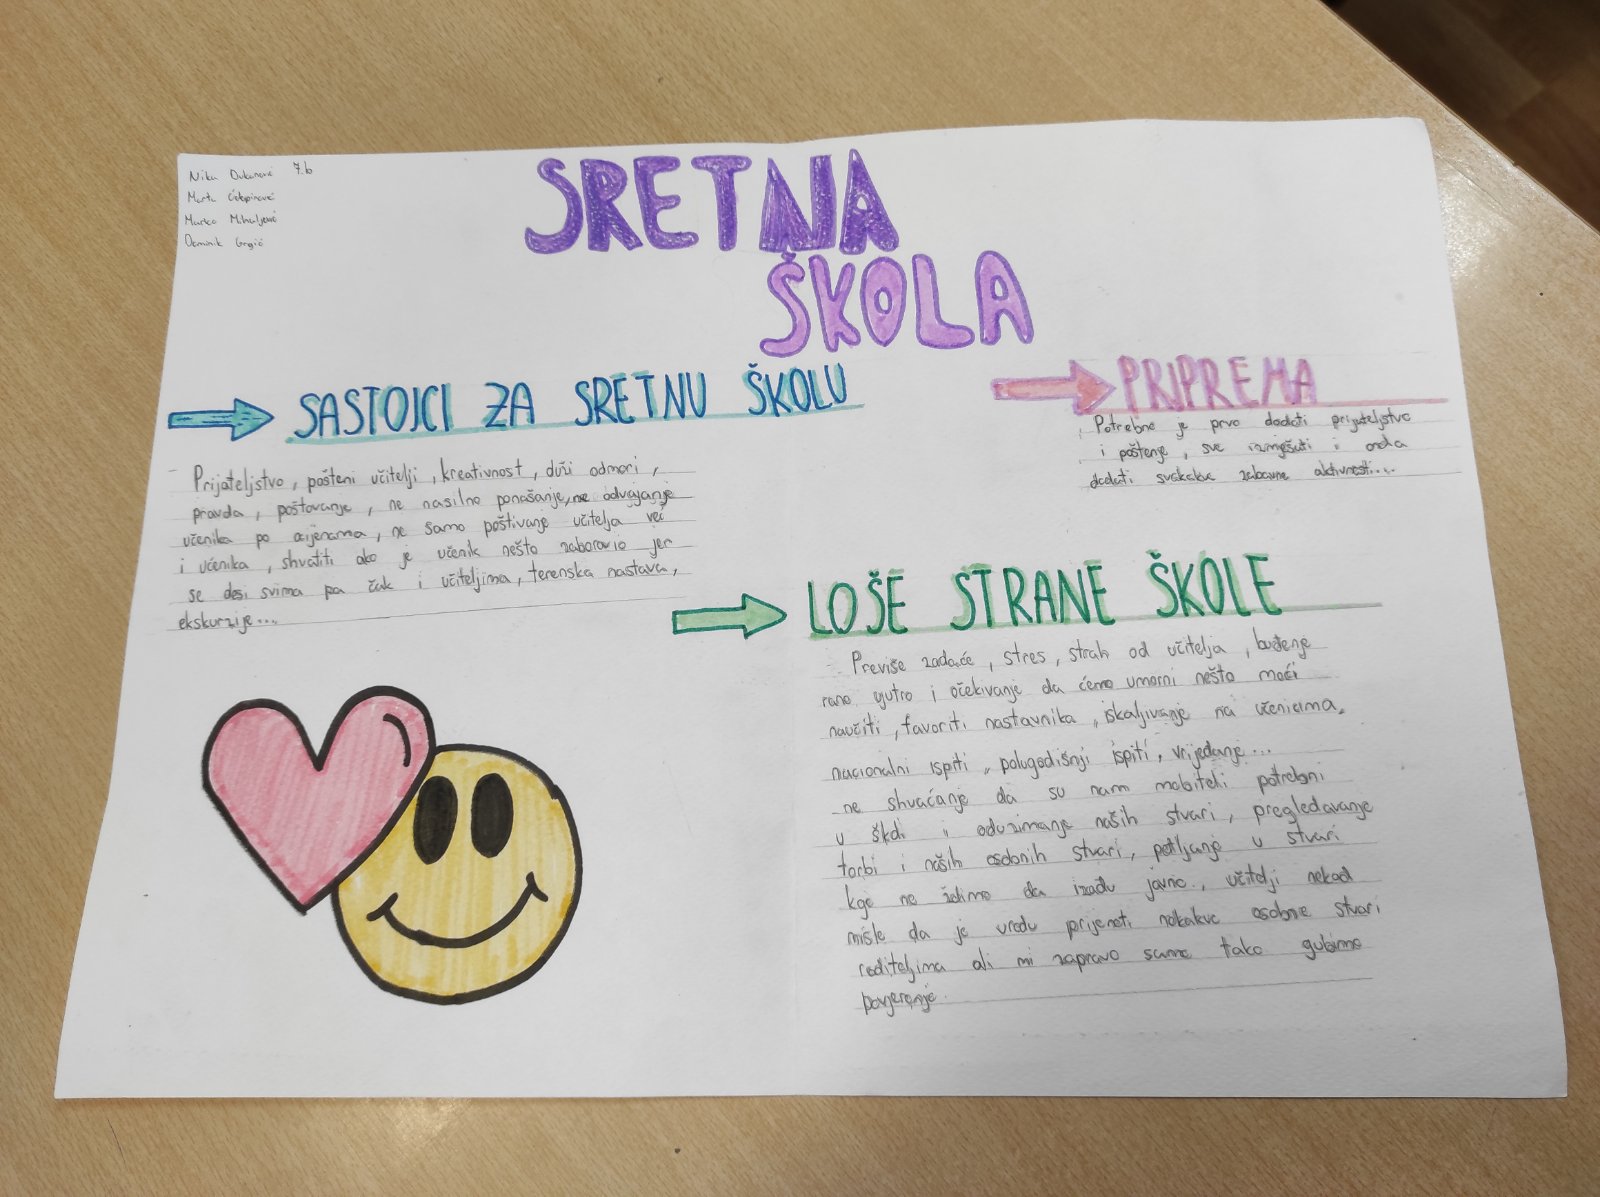 Nika Dukanović 7.b
Marta
Marko Mihaljević
Dominik Grgić
SRETNA
ŠKOLA
SASTOJCI ZA SRETNU ŠKOLU
Prijateljstvo, pošteni učitelji, kreativnost, duži odmori,
pravda, poštovanje, ne nasilno ponašanje, ne odvajanje
učenika po ocjenama, ne samo poštivanje učitelja već
i učenika, shvatiti ako je učenik nešto zaboravio jer
se desi svima pa čak i učiteljima, terenska nastava,
ekskurzije...
PRIPREMA
Potrebno je prvo dodati prijateljstvo
i poštenje, sve izmješati i onda
dodati svakakve zabavne aktivnosti....
LOŠE STRANE ŠKOLE
Previše zadaće, stres, strah od učitelja, buđenje
rano ujutro i očekivanje da ćemo umorni nešto moći
naučiti, favoriti nastavnika, iskaljivanje na učenicima,
nacionalni ispiti, polugodišnji ispiti, vrijeđanje...
ne shvaćanje da su nam mobiteli potrebni
u školi i oduzimanje naših stvari, pregledavanje
torbi i naših osobnih stvari, petljanje u stvari
koje ne želimo da izađu javno, učitelji nekad
misle da je uredu prijeneti nekakve osobne stvari
roditeljima ali mi zapravo samo tako gubimo
povjerenje.